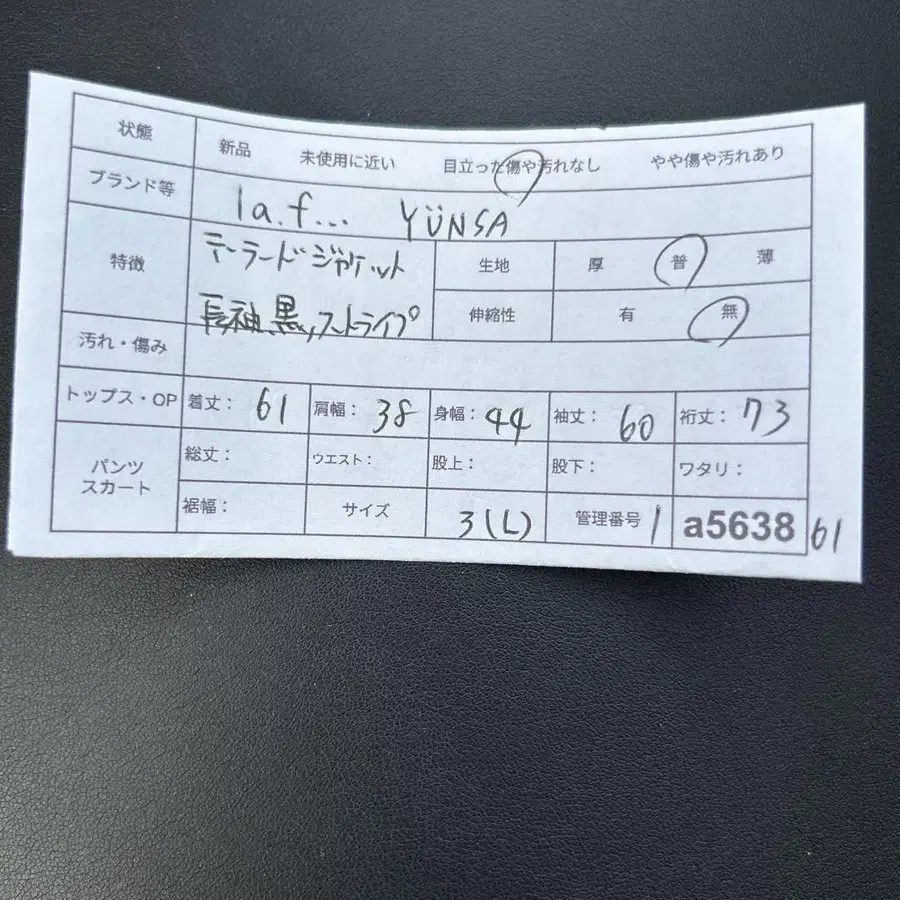 状態 新品 未使用に近い 目立った傷や汚れなし やや傷や汚れあり
ブランド等 la.f... YÜNSA
特徴 テーラードジャケット 生地 厚 普 薄
長袖、黒、ストライプ 伸縮性 有 無
汚れ・傷み
トップス・OP 着丈: 61 肩幅: 38 身幅: 44 袖丈: 60 裄丈: 73
パンツ スカート 総丈: ウエスト: 股上: 股下: ワタリ:
裾幅: サイズ 3(L) 管理番号 1 a5638 61